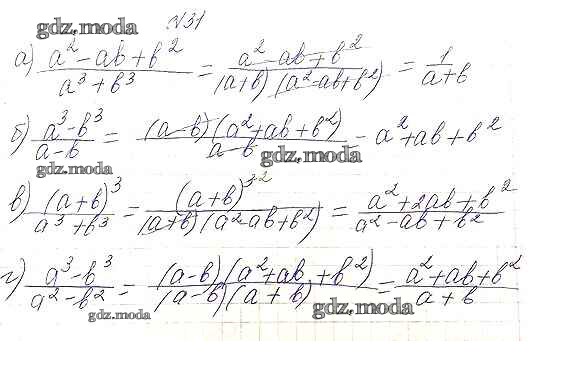 gdz.moda
№31
а) (a² - ab + b²)/(a³ + b³) = (a² - ab + b²)/((a+b)(a² - ab + b²)) = 1/(a+b)
б) (a³ - b³)/(a - b) = ((a - b)(a² + ab + b²))/(a - b) - a² + ab + b²
gdz.moda
gdz.moda
в) (a+b)³/(a³ + b³) = (a+b)³²/((a+b)(a² - ab + b²)) = (a² + 2ab + b²)/(a² - ab + b²)
г) (a³ - b³)/(a² - b²) = ((a - b)(a² + ab + b²))/((a - b)(a + b)) = (a² + ab + b²)/(a + b)
gdz.moda
gdz.moda